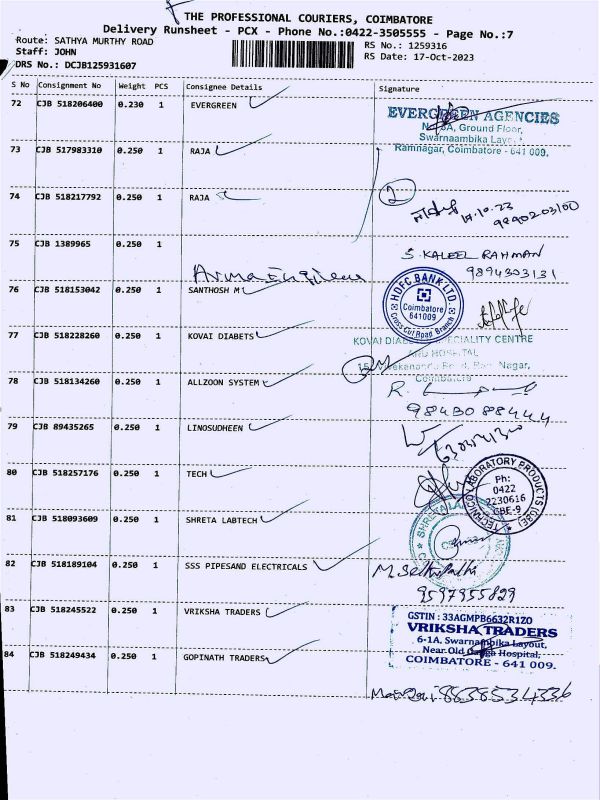 THE PROFESSIONAL COURIERS, COIMBATORE
Delivery Runsheet - PCX - Phone No.:0422-3505555 - Page No.:7
Route: SATHYA MURTHY ROAD
RS No.: 1259316
Staff: JOHN
RS Date: 17-Oct-2023
DRS No.: DCJB125931607
S No Consignment No Weight PCS Consignee Details Signature
72 CJB 518206400 0.230 1 EVERGREEN
EVERGREEN AGENCIES
Ground Floor,
Swarnaambika
Ramnagar, Coimbatore - 641 009.
73 CJB 517983310 0.250 1 RAJA
74 CJB 518217792 0.250 1 RAJA
2
75 CJB 1389965 0.250 1
S KALEEL RAHMAN
9894303131
76 CJB 518153042 0.250 1 SANTHOSH M
HDFC BANK LTD.
Coimbatore
641009
Cross Cut Road Branch
77 CJB 518228260 0.250 1 KOVAI DIABETS
KOVAI SPECIALITY CENTRE
AND HOSPITAL
Nagar,
Coimbatore
78 CJB 518134260 0.250 1 ALLZOON SYSTEM
R.
9843088444
79 CJB 89435265 0.250 1 LINOSUDHEEN
80 CJB 518257176 0.250 1 TECH
TECHNICO LABORATORY PRODUCTS (CBE)
Ph:
0422
2230616
CBE-9
81 CJB 518093609 0.250 1 SHRETA LABTECH
82 CJB 518189104 0.250 1 SSS PIPESAND ELECTRICALS
9597955829
83 CJB 518245522 0.250 1 VRIKSHA TRADERS
GSTIN : 33AGMPB6632R1Z0
VRIKSHA TRADERS
6-1A, Swarnambika Layout,
Near Old Hospital,
COIMBATORE - 641 009.
84 CJB 518249434 0.250 1 GOPINATH TRADERS